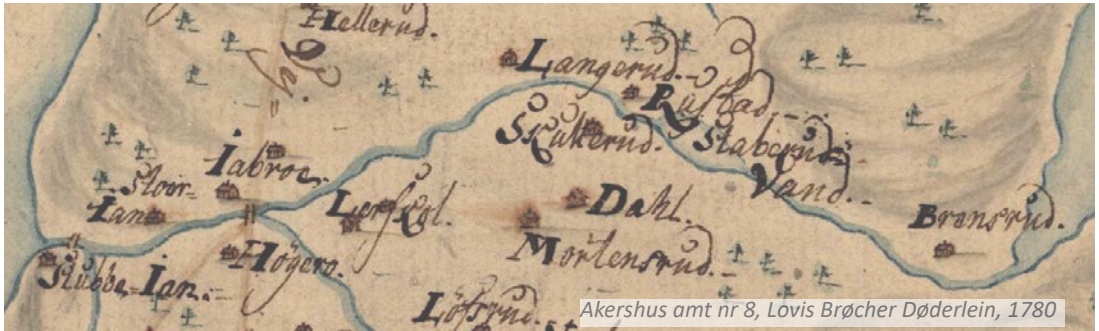 Hellerud.
Langerud.
Rustad
Skullerud.
Staberud
Vand.
Iabroe.
Stoor-
Ian
Lerskol.
Dahl.
Brensrud.
Högero.
Mortensrud.
Stubbe-Ian.
Löfsrud.
Akershus amt nr 8, Lovis Brøcher Døderlein, 1780